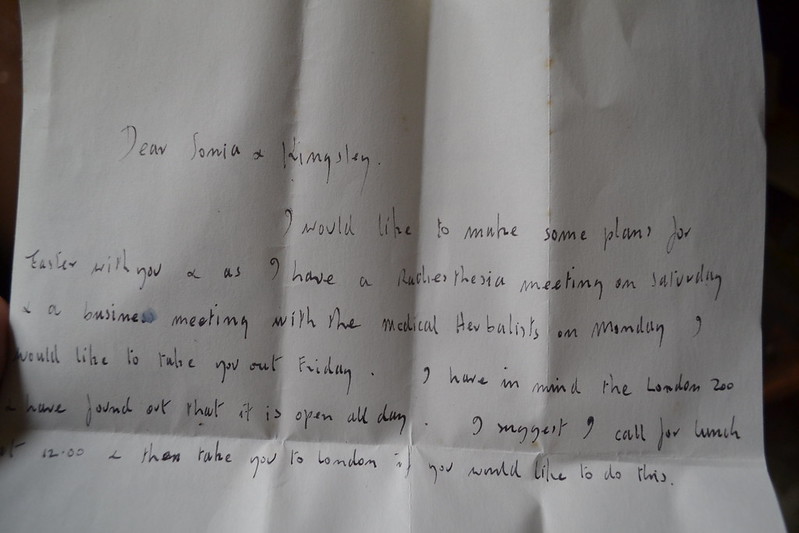 Dear Sonia & Kingsley.
I would like to make some plans for
Easter with you & as I have a Radiesthesia meeting on Saturday
& a business meeting with the medical Herbalists on Monday I
would like to take you out Friday. I have in mind the London Zoo
& have found out that it is open all day. I suggest I call for lunch
at 12.00 & then take you to London if you would like to do this.